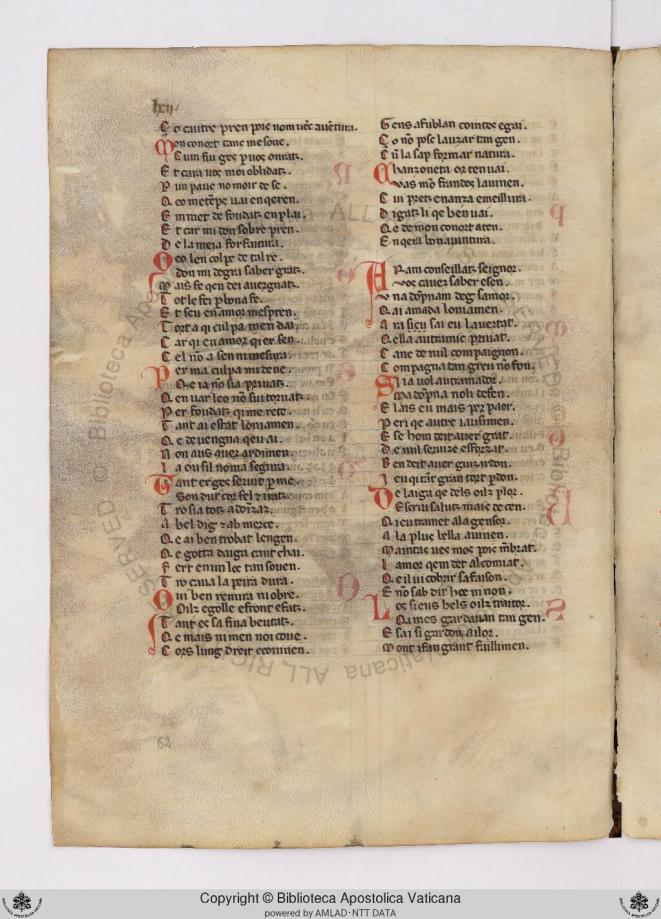 lxii.
C o cautre pren pois nom uēc auētura.
M on conort canc me soue.
C um fui ges p̄ uos onratz.
E t cara uos moi oblidatz.
P un pauc no moir de se.
Q eo metēpe uau enqeren.
E m met de foudatz en plai.
E t car mi don sobre pren.
D e la meia forfatura.
Q eo len colpe de tal re.
don mi degra saber gratz.
M ais fe qeu dei auergnatz.
T ot le fei p̄ bona fe.
E t seu en amor mespren.
T ort a qi culpa men dai.
C ar qi en amor qier sen.
C el nō a sen ni mesura.
P er ma culpa mi dene.
Q e ia nō sia priuatz.
Q en uar leo nō fui tornatz.
P er foudatz qi me rete.
T ant ai estat loniamen.
Q e de uengna qeu ai.
N on aus auer ardimen.
I a ou sil noma segura.
T ant er ges serunt p̄ me.
Son dur cor fel & iratz.
T ro sia totz adoūzatz.
A bel dig & ab merce.
Q e ai ben trobat legen.
Q e gotta daiga cant chai.
F ert en un loc tan souen.
T ro caua la peira dura.
Q ui ben remira ni obre.
Oilz e golle e front e fatz.
T ant es sa fina beutatz.
Q e mais ni men noi coue.
C ors lung dreit e couinen.
G ens afublan cointos e gai.
C o nō pose lauzar tan gen.
C ū la sap formar natura.
C hanzoneta or ten uai.
Vas mō frandes lauinen.
C ui pretz enanza e meillura.
D igatz li qe ben uai.
Q e de mon conort aten.
E nqera bonauintura.
A Ram conseillatz seignor.
vos cauez saber e sen.
v na dōpnam deg samor.
Q ai amada loniamen.
A ra sieu sai eu la uertat.
Q ella autramic priuat.
C anc de nuil compaignon.
C ompagna tan greu nō fon.
S i ia uol autramador.
Ma dōpna noli defen.
E lais en mais p̄ paor.
P eri qe autre iausimen.
E se hom deit auer grat.
D e nuil seruize esforzat.
B en deit auer guizirdon.
I eu qi tār gran tort p̄don.
D e laiga qe dels oilz plor.
Escriu salutz mais de cen.
Q ieu tramet ala gensor.
A la plus bella auinen.
M aintas ues mos pois mēbrat.
L amor qem det al comiat.
Q e il ui cobrir sa faison.
E nō sab dir hoc ni non.
L os sieus bels oilz traitor.
Qi mes gardauan tan gen.
E sai si gardon ailor.
M ont i fan grant faillimen.
62
Copyright © Biblioteca Apostolica Vaticana
powered by AMLAD·NTT DATA